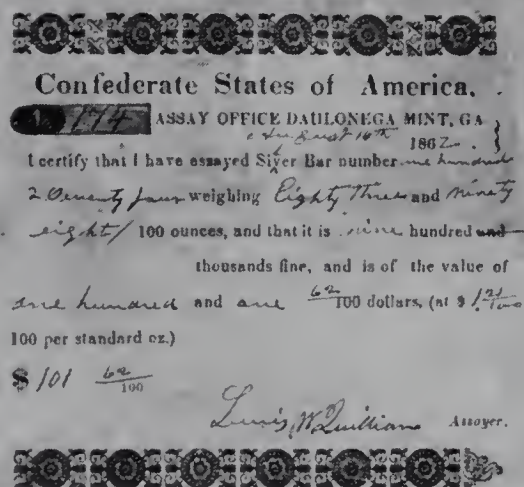 Confederate States of America.
174 ASSAY OFFICE DAULONEGA MINT, GA
August 16th 1862
I certify that I have essayed Siver Bar number one hundred
Seventy four weighing Eighty Three and ninety
eight/100 ounces, and that it is nine hundred and
thousands fine, and is of the value of
one hundred and one 62/100 dollars, (at $ 1 21/100
100 per standard oz.)
$ 101 62/100
Lewis W Quillian Assayer.